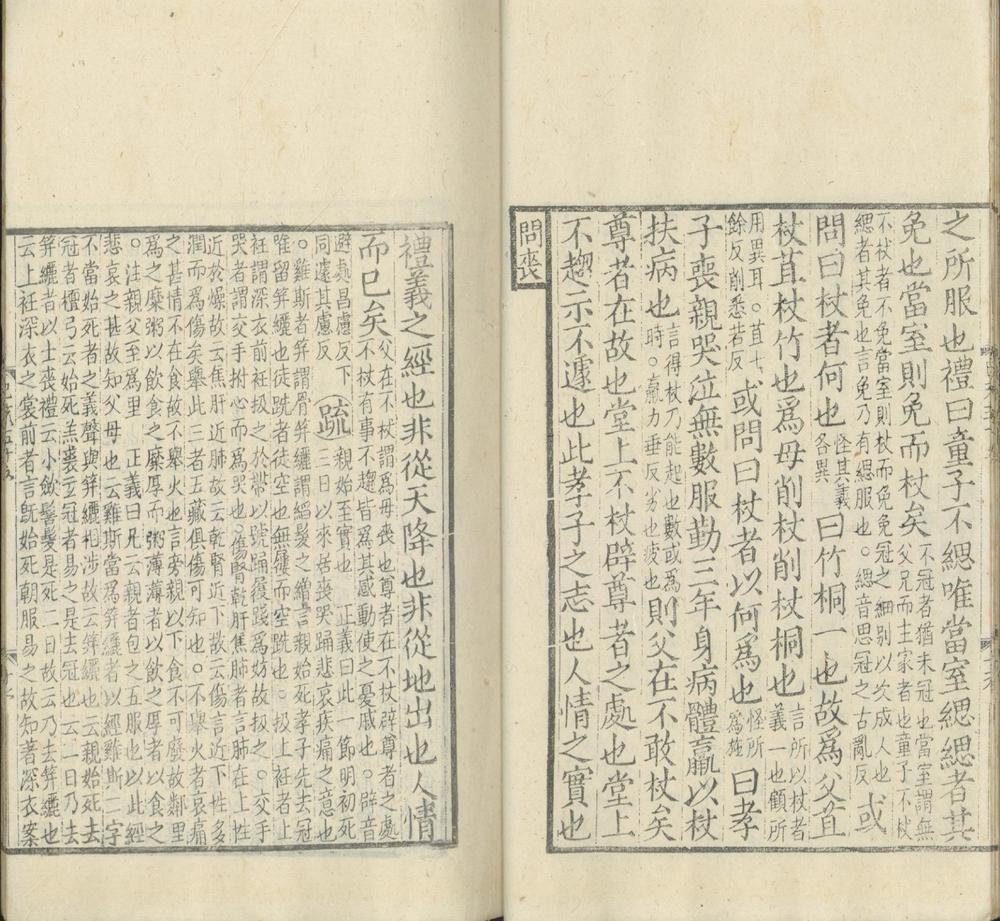 之所服也禮曰童子不緦唯當室緦緦者其
免也當室則免而杖矣不冠者猶未冠也當室謂無
父兄而主家者也童子不杖
不杖者不免當室則杖而免免冠之細別以次成人也
緦者其免也言免乃有緦服也。緦音思冠之古亂反或
問曰杖者何也怪其義
各異曰竹桐一也故爲父苴
杖苴杖竹也爲母削杖削杖桐也言所以杖者
義一也顧所
用異耳。苴七
餘反削悉若反或問曰杖者以何爲也怪所
爲施曰孝
子喪親哭泣無數服勤三年身病體羸以杖
扶病也言得杖乃能起也數或爲
時。羸力垂反劣也疲也則父在不敢杖矣
尊者在故也堂上不杖辟尊者之處也堂上
不趨示不遽也此孝子之志也人情之實也
問喪
禮義之經也非從天降也非從地出也人情
而已矣父在不杖謂爲母喪也尊者在不杖辟尊者之處
不杖有事不趨皆爲其感動使之憂戚也。辟音
辟處昌慮反下
同遽其慮反疏親始至實也 正義曰此一節明初死
三日以來居喪哭踊悲哀疾痛之意也
。雞斯者笄謂骨笄纚謂縚髮之繒言親始死孝子先去冠
唯留笄纚也徒跣者徒空也無屨而空跣也。扱上衽者上
衽謂深衣前衽扱之於帶以號踊履踐爲妨故扱之。交手
哭者謂交手拊心而爲哭也。傷腎乾肝焦肺者言肺在上性
近於燥故云焦肝近肺故云乾腎近下故云傷言近下性多
潤而爲傷矣舉此三者五藏俱傷可知也。不舉火者哀痛
之甚情不在食故不舉火也言旁親以下食不可廢故鄰里
爲之糜粥以飲食之糜厚而粥薄薄者以飲之厚者以食之
。注親父至爲里 正義曰凡云親者包之五服也以此經
悲哀之甚故知父母也云雞斯當爲笄纚者以經雞斯二字
不當始死者之義聲與笄纚相涉故云笄纚也云親始死去
冠者檀弓云始死羔裘玄冠者易之是去冠也云二日乃去
笄纚者以士喪禮云小斂髺髮是死二日故云二日乃去笄纚也
云上衽深衣之裳前者言既始死朝服易之故知著深衣案